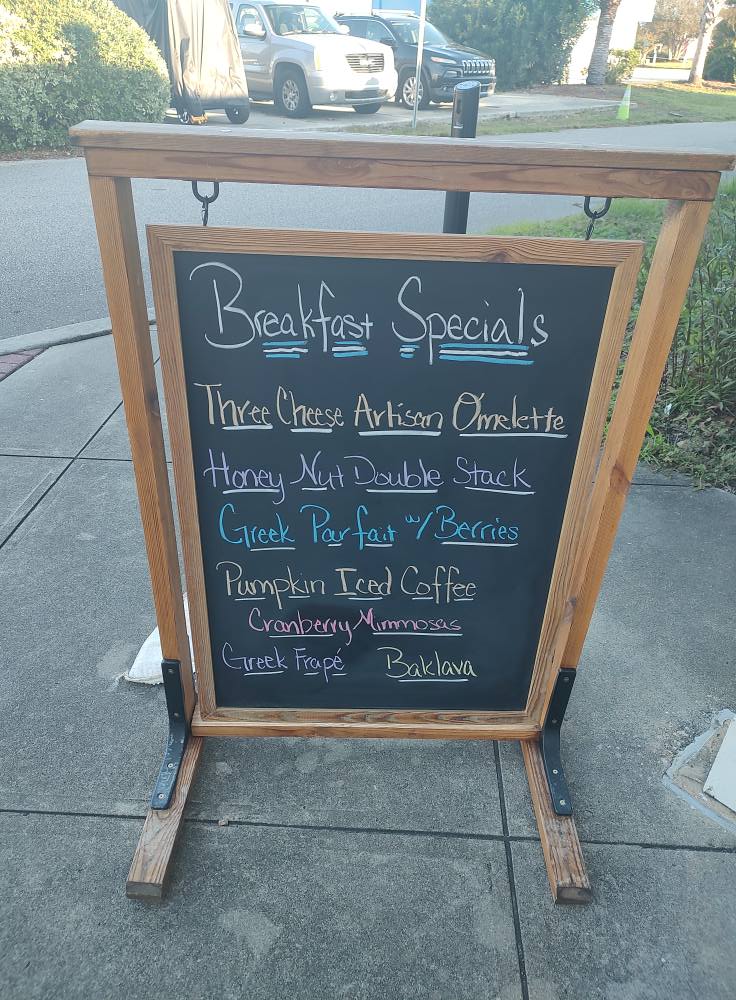 Breakfast Specials
Three Cheese Artisan Omelette
Honey Nut Double Stack
Greek Parfait w/ Berries
Pumpkin Iced Coffee
Cranberry Mimmosas
Greek Frapé Baklava